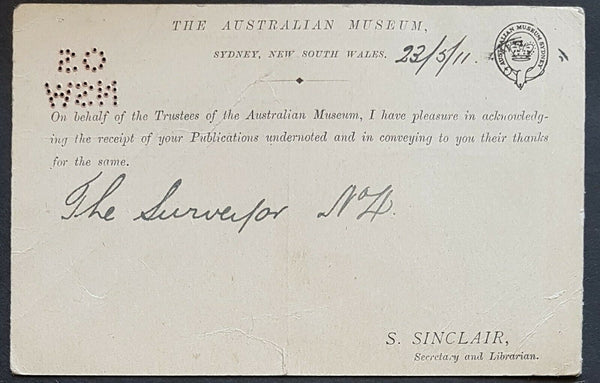 THE AUSTRALIAN MUSEUM,
SYDNEY, NEW SOUTH WALES. 23/5/11
AUSTRALIAN MUSEUM SYDNEY
OS
NSW
On behalf of the Trustees of the Australian Museum, I have pleasure in acknowledg-
ing the receipt of your Publications undernoted and in conveying to you their thanks
for the same.
The Surveyor No 4.
S. SINCLAIR,
Secretary and Librarian.